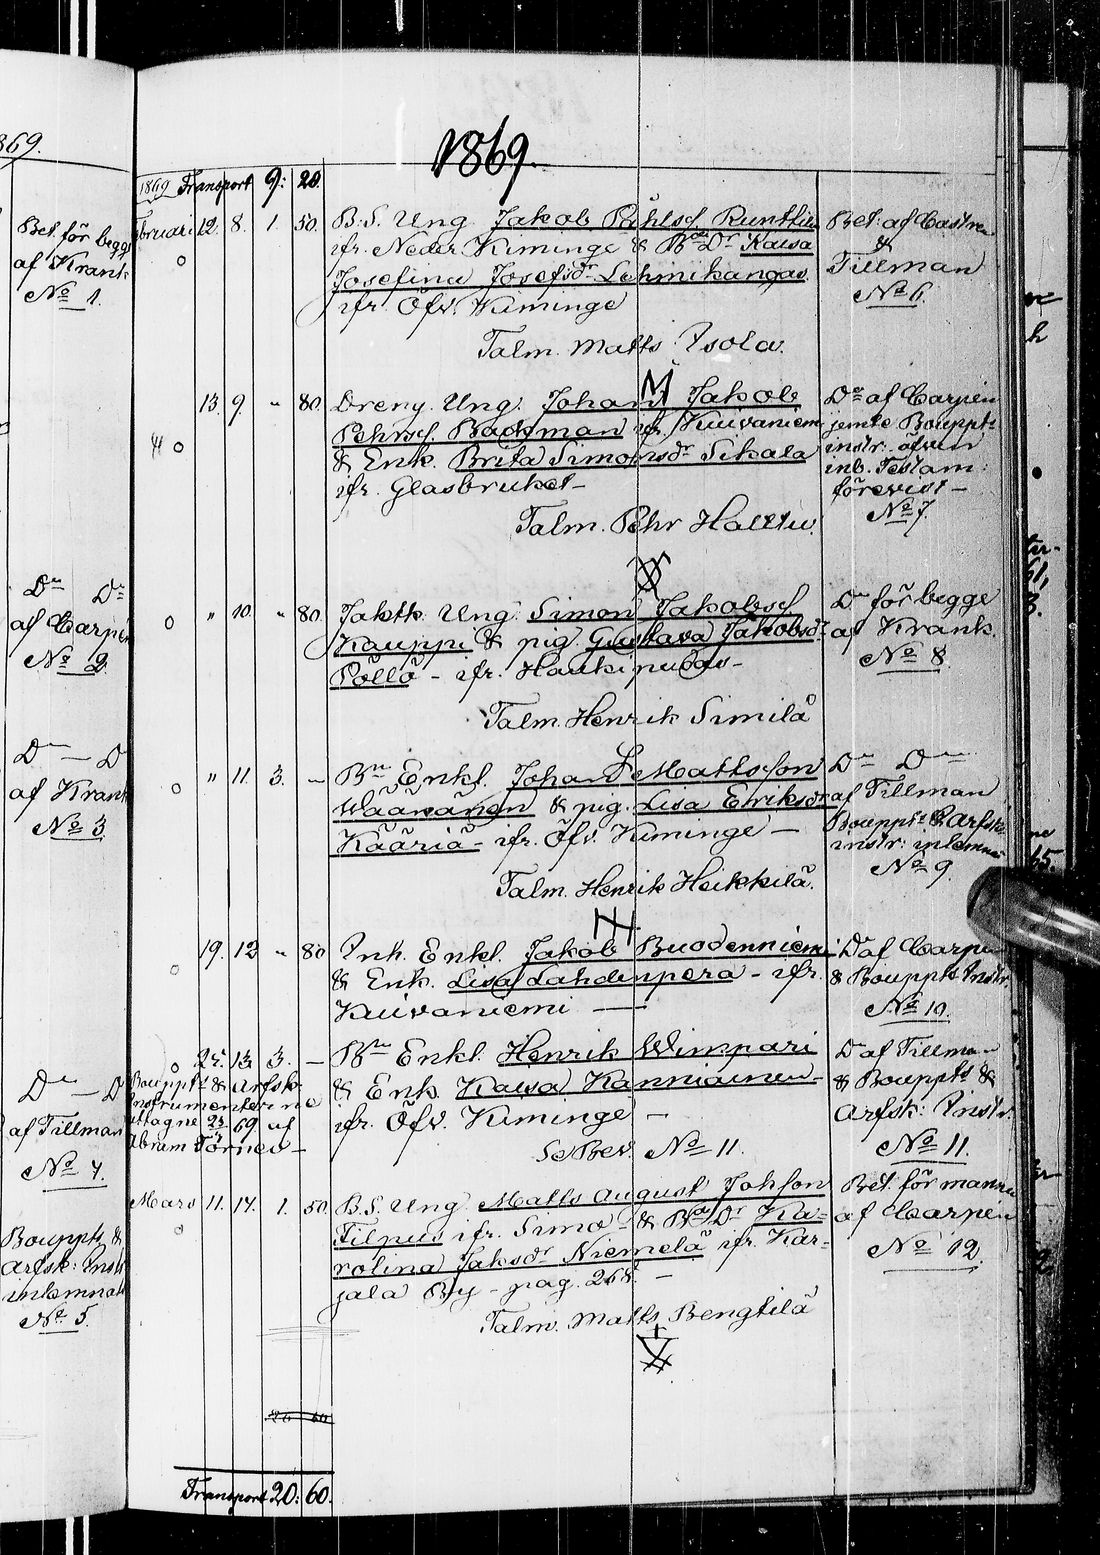 869.
Bet. för begge
af Krank
No 1.
Dn Dn
af Carpén
No 2.
Dn — D
af Krank
No 3.
Dn — D
af Tillman
No 4.
Bouppt. &
Arfsk: Inst
inlemnat
No 5.
1869.
1869 Transport 9: 20.
Februari 12. 8. 1. 50. B.S. Ung. Jakob Påhlss. Runtti
ifr. Neder Kiminge & Bde Dr Kaisa
Josefina Josefsdr Lehmikangas
ifr. Öfv. Kiminge
Talm. Matts Isola.
Bet. af Castrén
&
Tillman
No 6.
13. 9. " 80. Dreng. Ung. Johan Jakob
Pehrss. Backman ifr. Kuivaniemi
& Enk. Brita Simonsdr Sikala
ifr. Glasbruket —
Talm. Pehr Halttu.
Dn af Carpén
jemte Bouppts
instr. äfven
inb. Testam:
förevist —
No 7.
" 10. " 80. Jaktk. Ung. Simon Jakobss.
Kauppi & pig. Gustava Jakobsdr
Pöllö — ifr. Haukipudas —
Talm. Henrik Similä
Dn för begge
af Krank.
No 8.
" 11. 3. — Bn Enkl. Johan Mattsson
Wäänänen & pig. Lisa Eriksdr
Kääriä — ifr. Öfv. Kiminge —
Talm. Henrik Heikkilä.
Dn Dn
af Tillman
Bouppt. & Arfsk.
instr: inlemn
No 9.
19. 12 " 80 Inh. Enkl. Jakob Buodenniemi
& Enk. Lisa Lahdenperä — ifr.
Kuivaniemi —
Dn af Carpén
& Bouppts Instr.
No 10.
25. 13 3. — Bn Enkl. Henrik Wimpari
& Enk. Kaisa Kanniainen —
ifr. Öfv. Kiminge —
Se Bev. No 11.
Bouppt. & Arfsk.
Instrumenterne
uttagne 23/4 69 af
Abram Törnev —
Dn af Tillman
& Bouppts &
Arfsk: Instr.
No 11.
Mars 11. 14. 1. 50. B.S. Ung. Matts August Johsson
Tilpus ifr. Simo — & Bde Dr Ka-
rolina Jaksdr Niemelä ifr. Kar-
jala By — pag. 268. —
Talm. Matts Bengtilä
Bet. för mannen
af Carpén
No 12.
20 60
Transport 20: 60.